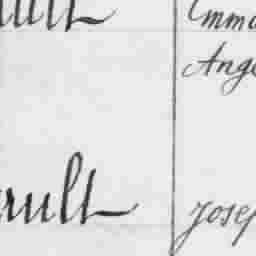 ault Emma
Ange
ault Josep